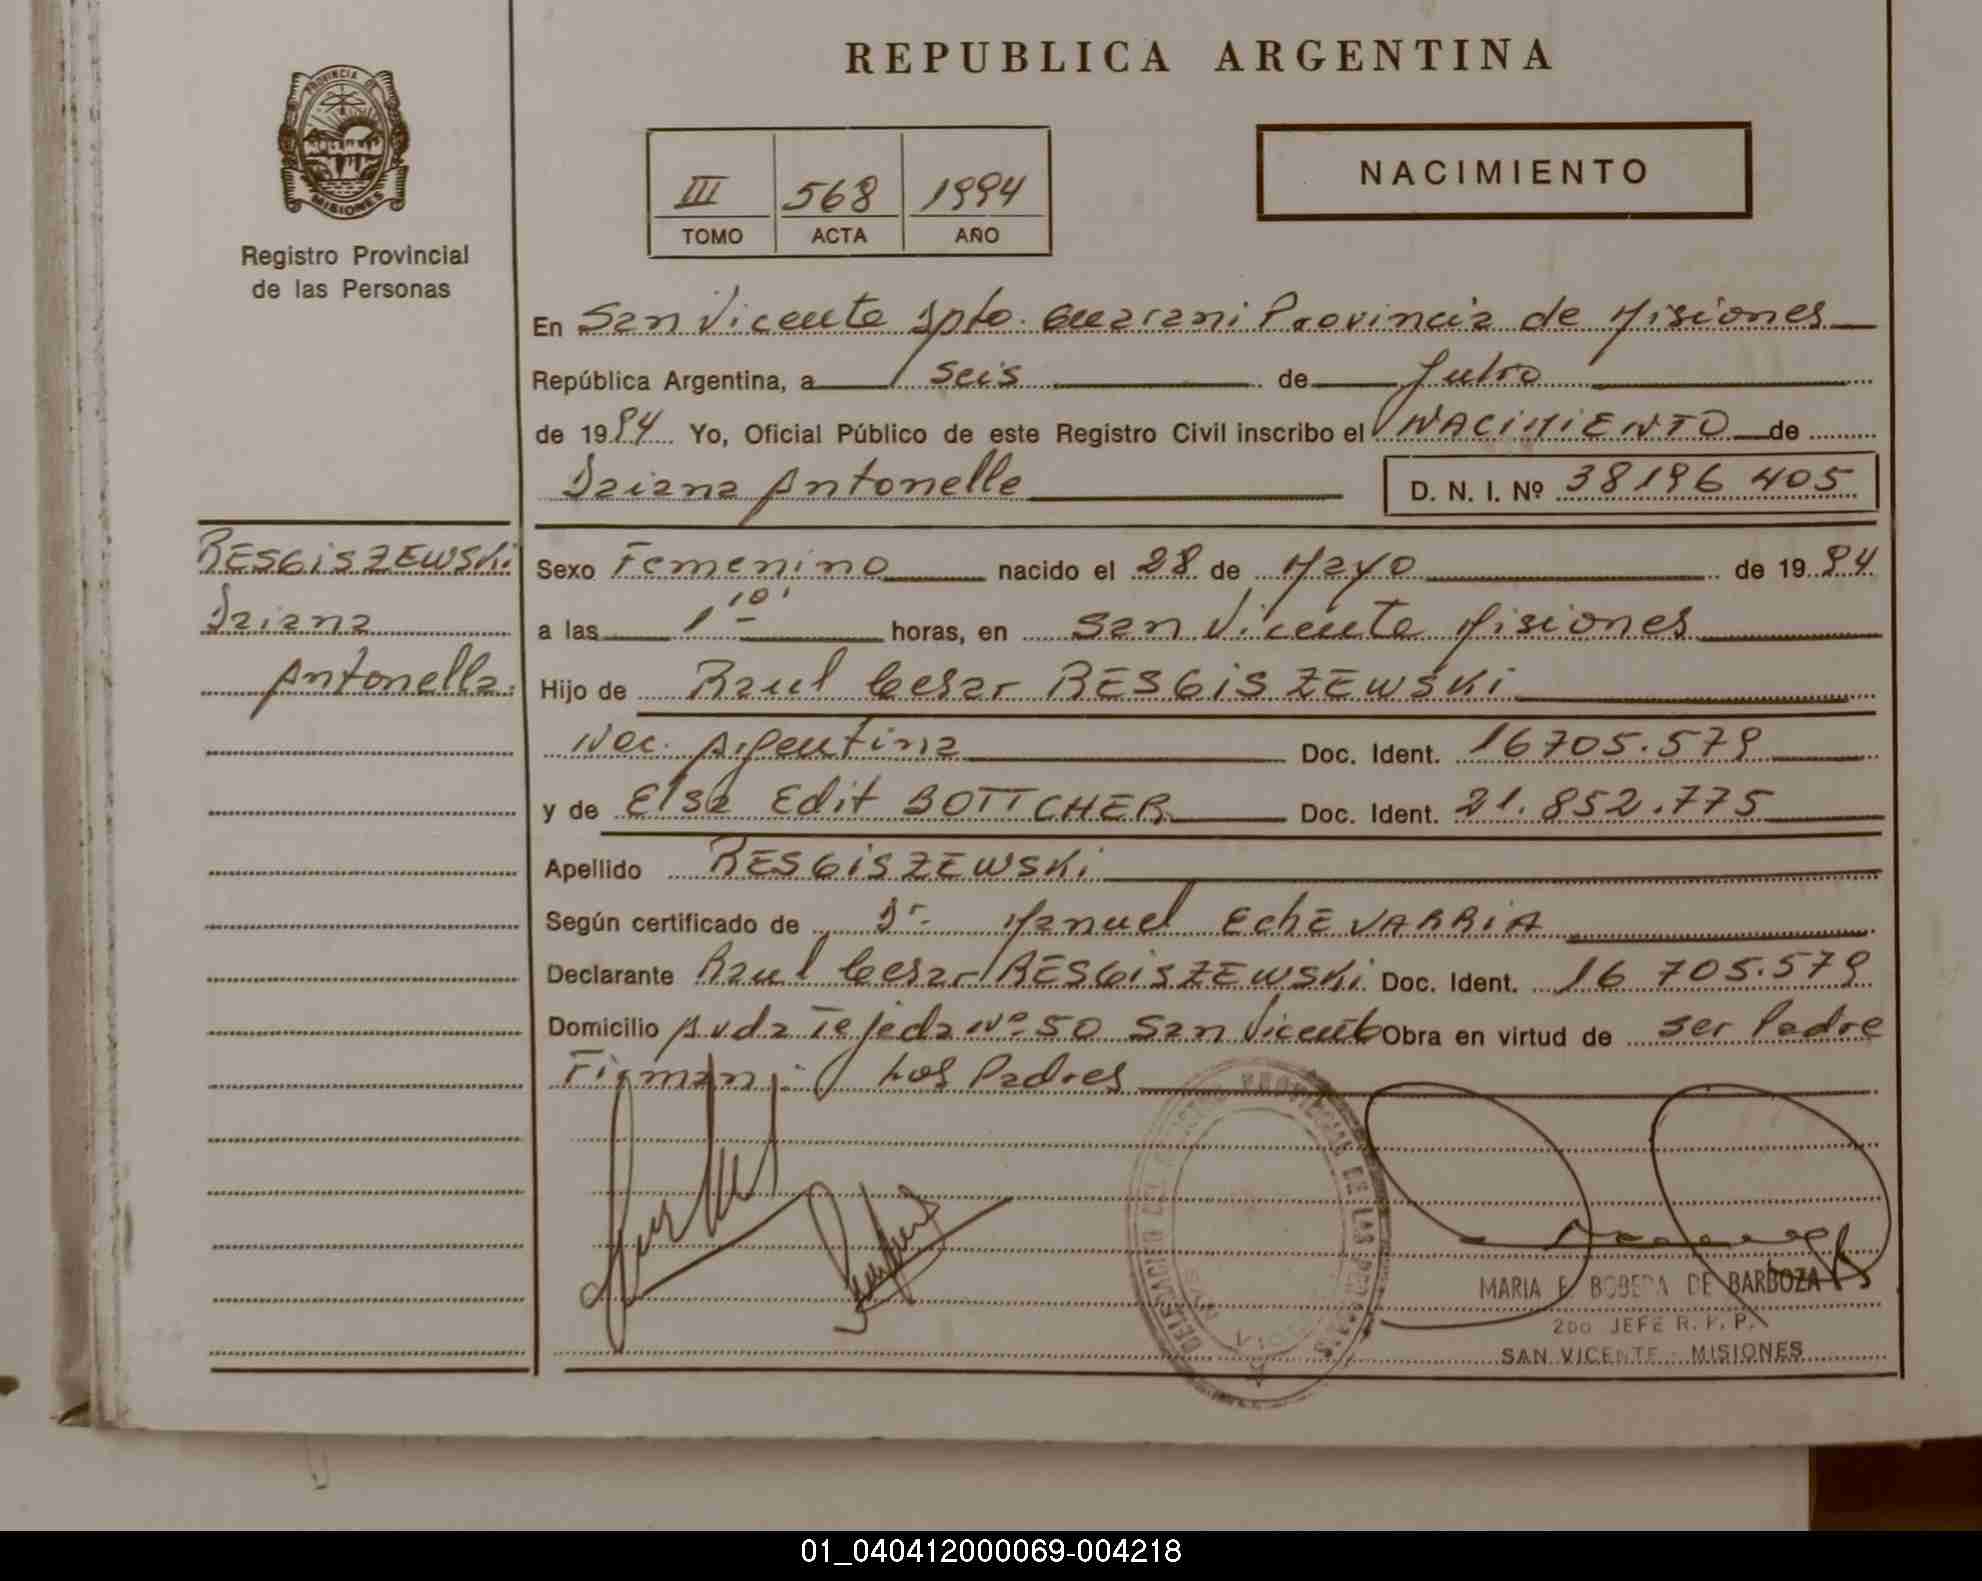 REPUBLICA ARGENTINA
PROVINCIA DE
MISIONES
Registro Provincial
de las Personas
III 568 1994
TOMO ACTA AÑO
NACIMIENTO
En San Vicente Dpto. Guarani Provincia de Misiones
República Argentina, a seis de Julio
de 1994 Yo, Oficial Público de este Registro Civil inscribo el NACIMIENTO de
Daiana Antonella
D. N. I. Nº 38196 405
RESGISZEWSKi
Daiana
Antonella.
Sexo Femenino nacido el 28 de Mayo de 1994
a las 1 10' horas, en San Vicente Misiones
Hijo de Raul Cesar RESGISZEWSKi
Nac. Argentina Doc. Ident. 16705.579
y de Elsa Edit BOTTCHER Doc. Ident. 21.852.775
Apellido RESGISZEWSKi
Según certificado de Dr. Manuel EchEVARRiA
Declarante Raul Cesar RESGISZEWSKi Doc. Ident. 16 705.579
Domicilio Avda Tejeda Nº 50 San Vicente Obra en virtud de ser Padre
Firman: Los Padres
DELEGACION DEL REGISTRO PROVINCIAL DE LAS PERSONAS
MARIA E. BOBEDA DE BARBOZA
2do JEFE R. P. P.
SAN VICENTE - MISIONES
01_040412000069-004218